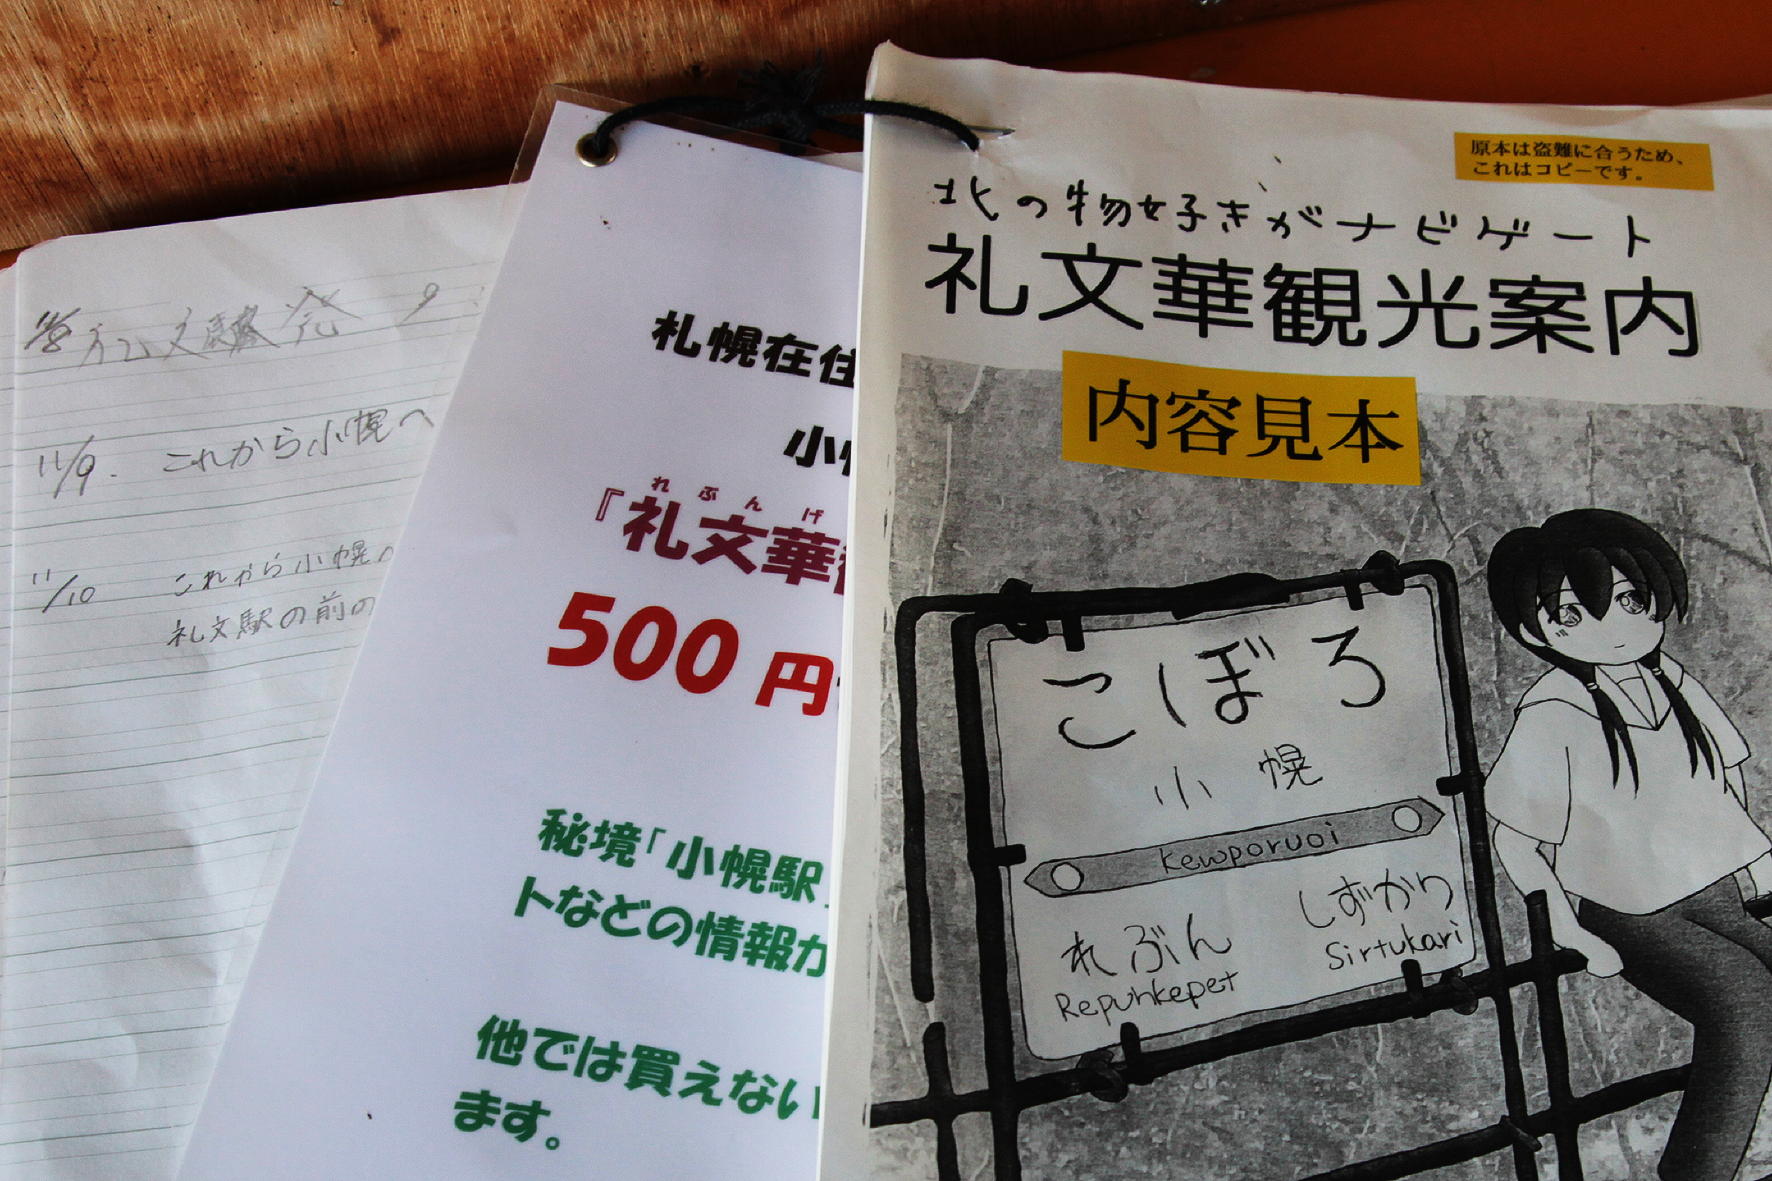 11/9. これから小幌へ
11/10 これから小幌へ
礼文駅の前の
札幌在住
小
れぶんげ
『礼文華
500円
秘境「小幌駅」
トなどの情報が
他では買えない
ます。
原本は盗難に合うため、
これはコピーです。
北の物好きがナビゲート
礼文華観光案内
内容見本
こぼろ
小幌
kewporuoi
れぶん
Repunkepet
しずかり
Sirtukari